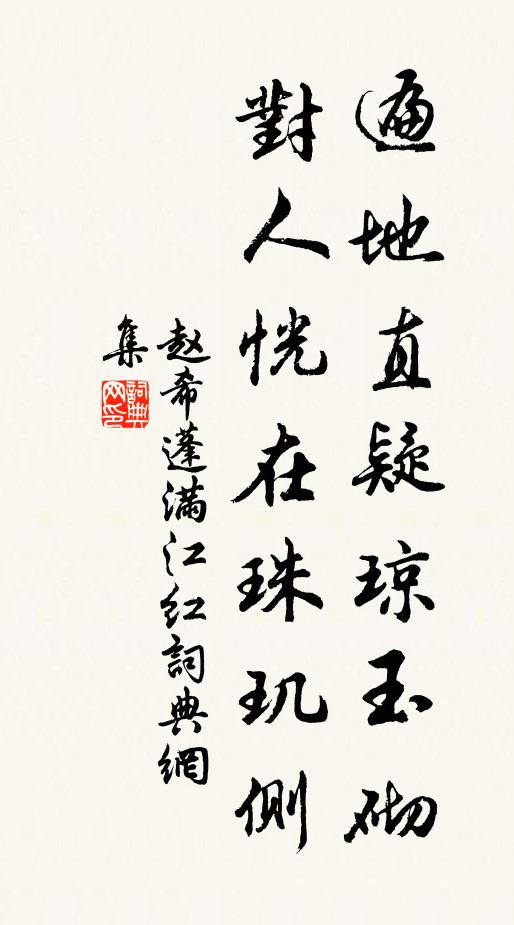 遍地直疑琼玉砌
對人恍在珠玑側
赵希蓬满江红詞典網
集
詞典网印